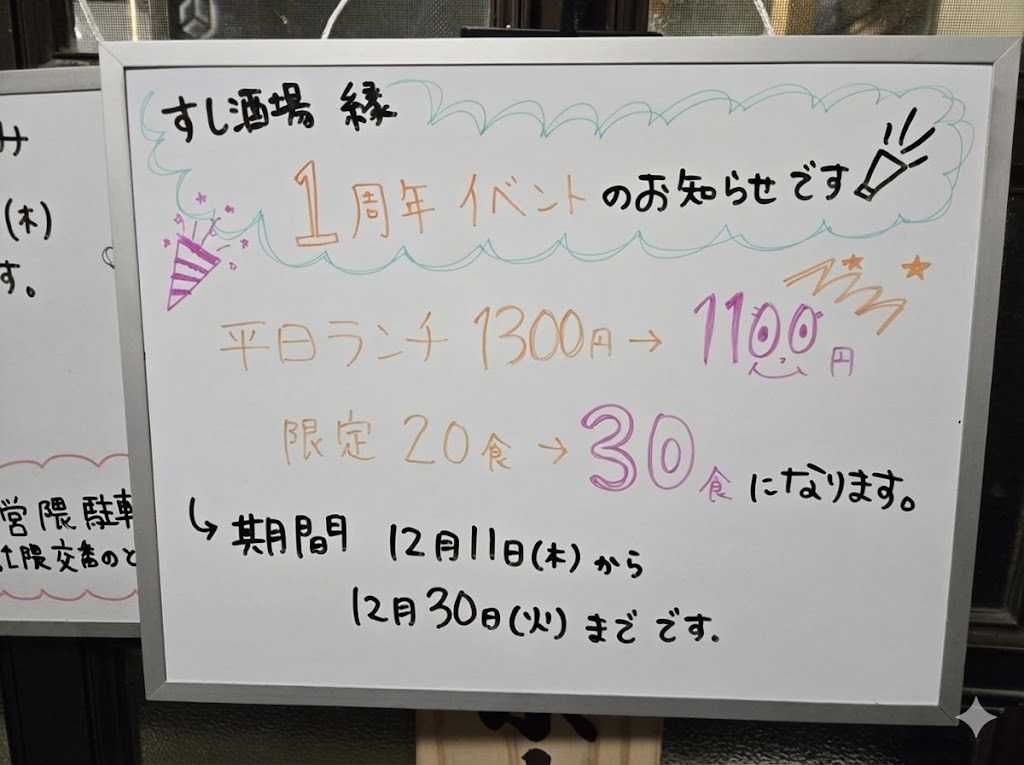 すし酒場 縁
1周年 イベントのお知らせです
平日ランチ 1300円→1100円
限定 20食→30食になります。
↳ 期間 12月11日(木)から
12月30日(火)までです.
み
(木)
す。
営隈駐車
隈交番のと